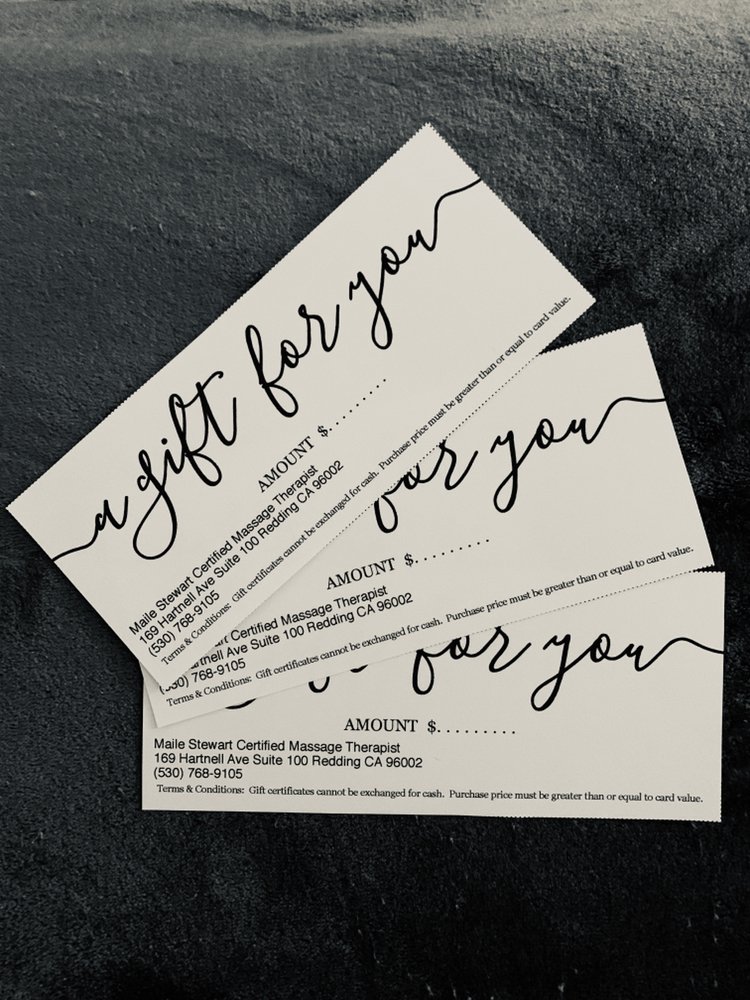 a gift for you
AMOUNT $.........
Maile Stewart Certified Massage Therapist
169 Hartnell Ave Suite 100 Redding CA 96002
(530) 768-9105
Terms & Conditions: Gift certificates cannot be exchanged for cash. Purchase price must be greater than or equal to card value.
for you
AMOUNT $.........
art Certified Massage Therapist
artnell Ave Suite 100 Redding CA 96002
(530) 768-9105
Terms & Conditions: Gift certificates cannot be exchanged for cash. Purchase price must be greater than or equal to card value.
gift for you
AMOUNT $.........
Maile Stewart Certified Massage Therapist
169 Hartnell Ave Suite 100 Redding CA 96002
(530) 768-9105
Terms & Conditions: Gift certificates cannot be exchanged for cash. Purchase price must be greater than or equal to card value.